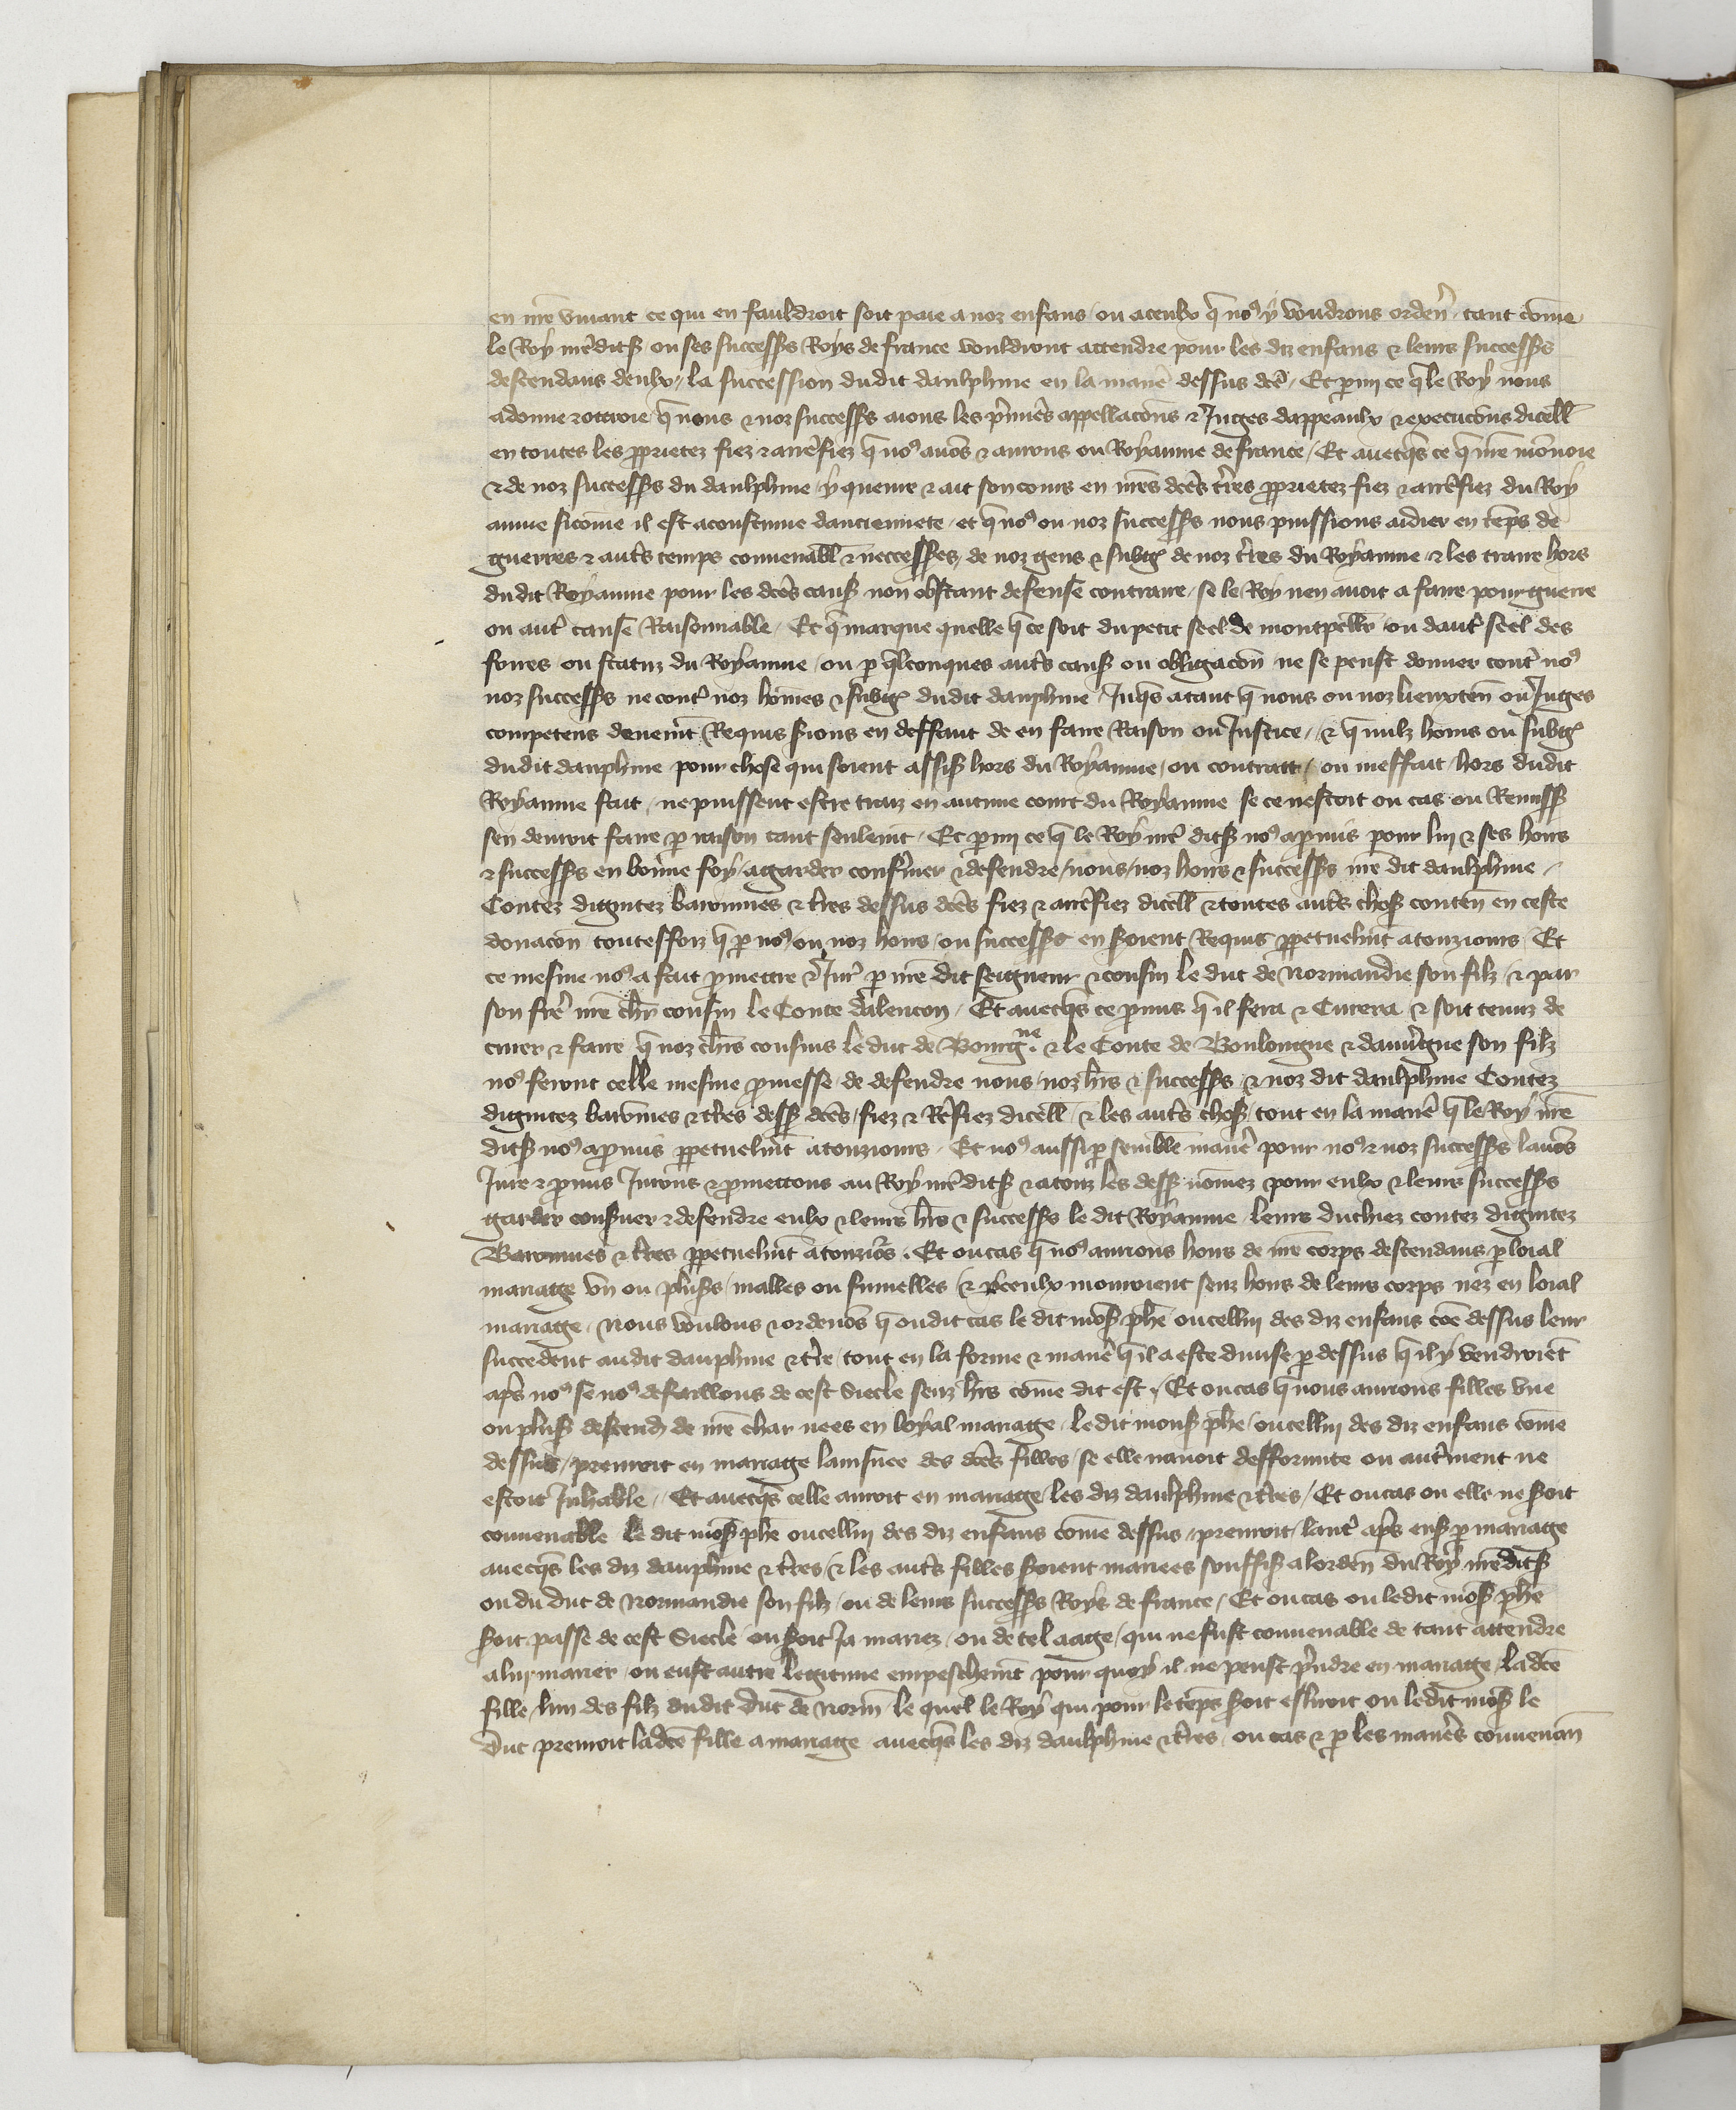 en nrē viuant ce qui en fauldroit soit paie a noz enfans / ou a ceulx q̄ noꝰ y voudrons ordeñ / tant cōme
le Roy nr̄e dit s̄ / ou ses successrs Roys de france vouldront attendre pour les diz enfans & leurs successrs
descendans deulx / la succession dudit daulphine en la manē dessus dc̄e / Et ꝑmi ce q̄ le Roy nous
a donne & ottroie q̄ nous & noz successrs aions les p̄mie͛s appellacōns & Juges dappeaulx & execucōns dicell̄
en toutes les ꝓprietez fiez & arre͛fiez q̄ noꝰ auōs & aurons ou Royaume de france / Et auecq̄s ce q̄ nr̄e mōnoie
& de noz successrs du daulphine / y queure & ait son cours en nr̄es dc̄es t͛res ꝓprietez fiez & arre͛fiez du Roy
aume si cōme il est acoustume danciennete / et q̄ noꝰ ou noz successrs nous puissions aidier en tēps de
guerres & aut͛s temps conuenabl̄ & neccessres / de noz gens & subgꝫ de noz t͛res du Royaume / & les traire hors
du dit Royaume pour les dc̄es caus̄ non obstant defense contraire / se le Roy nen auoit a faire pour guerre
ou aut͛ cause Raisonnable / Et q̄ marque quelle q̄ ce soit du petit seel de montpell̄r / ou daut͛ seel des
foires ou statuz du Royaume / ou ꝑ q̄lconques aut͛s caus̄ ou obligacōn ne se peust donner cont͛ noꝰ
noz successrs ne cont͛ noz hōmes & subgꝫ dudit dauphine / Juq̄s a tant q̄ nous ou noz lieuxten̄ ou Juges
competens deuemt̄ Requis fussions en deffaut de en faire Raison ou Justice // & q̄ nulz hoīns ou subgꝫ
dudit dauphine pour chose qui soient assis̄ hors du Royaume / ou contratt / ou meffait hors dudit
Royaume fait / ne puissent estre traiz en aucune court du Royaume se ce nestoit ou cas ou Remiss̄
sen deuroit faire ꝑ raison tant seulemt̄ / Et ꝑmi ce q̄ le Roy nr̄e dit s̄ noꝰ a ꝓmis pour lui & ses hoirs
& successrs en bōnne foy / a garder conf͛mer & defendre / nous / noz hoirs & successrs nr̄e dit daulphine /
Contez dignitez baronnies & t͛res dessus dc̄es fiez & arre͛fiez dicell̄ & toutes aut͛s chos̄ conten̄ en ceste
donacōn toutesfoiz q̄ ꝑ noꝰ / ou noz hoirs / ou successrs en soient Requis ꝑpetuelmt̄ a touzjours / Et
ce mesme noꝰ a fait ꝓmettre & Jur͛ ꝑ nr̄e dit seigneur & cousin le duc de Normandie son filz / & par
son fre͛ nr̄e ch͛r cousin le Conte dalencon / Et auecq̄s ce ꝓmis q̄ il fera & Curera / & soit tenuz de
curer & faire q̄ noz ch͛rs cousins le duc de Bourgne. & le Conte de Boulongne & dauu͛gne son filz
noꝰ feront celle mesme ꝓmesse / de defendre nous / noz h͛rs & successrs & noz dit daulphine Contez
dignitez baronnies & t͛res dess̄ dc̄es / fiez & Re͛fiez dicell̄ / & les aut͛s chos̄ / tout en la mane͛ q̄ le Roy nr̄e
dit s̄ noꝰ a ꝓmis ꝑpetuelmt̄ a touzjours / Et noꝰ aussi ꝑ semble mane͛ pour noꝰ & noz successrs lauōs
Jure & ꝓmis Jurons & ꝓmettons au Roy nr̄e dit s̄ & a touz les dess̄ nōmez pour eulx & leurs successrs
garder consuer & defendre eulx & leurs h͛rs & successrs le dit Royaume / leurs duchiez contez dignitez
Baronnies & t͛res ꝑpetuelmt̄ a touzjōs. Et ou cas q̄ noꝰ aurions hoirs de nr̄e corps descendans ꝑ loial
mariage vn ou plus̄s / malles ou fumelles / & yceulx mouroient senz hoirs de leurs corps nez en loial
mariage / Nous voulons & ordenōs q̄ oudit cas le dit mōs̄ ph͛e ou cellui des diz enfans cōe dessus leur
succedent audit dauphine & t͛re / tout en la forme & mane͛ q̄ il a este diuise ꝑ dessus q̄ il y vendroiēt
aps̄ noꝰ se noꝰ defaillons de cest Siecle senz h͛rs cōme dit est / Et ou cas q̄ nous aurions filles vne
ou plus̄ descend de nr̄e char nees en loyal mariage / le dit mons̄ ph͛e / ou cellui des diz enfans cōme
dessus / prenroit en mariage lainsnee des dc̄es filles / se elle nauoit difformite ou aut͛ment ne
estoit Inhable // Et auecq̄s celle auroit en mariage / les diz daulphine & t͛res / Et ou cas ou elle ne soit
conuenable le dit mōs̄ ph͛e ou cellui des diz enfans cōme dessus / prenroit / laut͛ aps̄ ens̄ ꝑ mariage
auecq̄s les diz dauphine & t͛res / & les aut͛s filles soient mariees souffis̄ a lorden̄ du Roy nr̄e dit s̄
ou du duc de Normandie son filz / ou de leurs successrs Roys de france / Et ou cas ou ledit mōs̄ ph͛e
soit passe de cest Siecle / ou soit Ja mariez / ou de tel aage / qui ne fust conuenable de tant attendre
a lui marier / ou eust autre legitime empeschemt̄ pour quoy il ne peust p͛ndre en mariage / ladc̄e
fille / lun des filz du dit Duc de Norm̄ le quel le Roy qui pour le tēps soit esliroit ou ledit mōs̄ le
Duc prenroit ladc̄e fille a mariage auecq̄s les diz daulphine & t͛res / ou cas & ꝑ les mane͛s conuenan̄